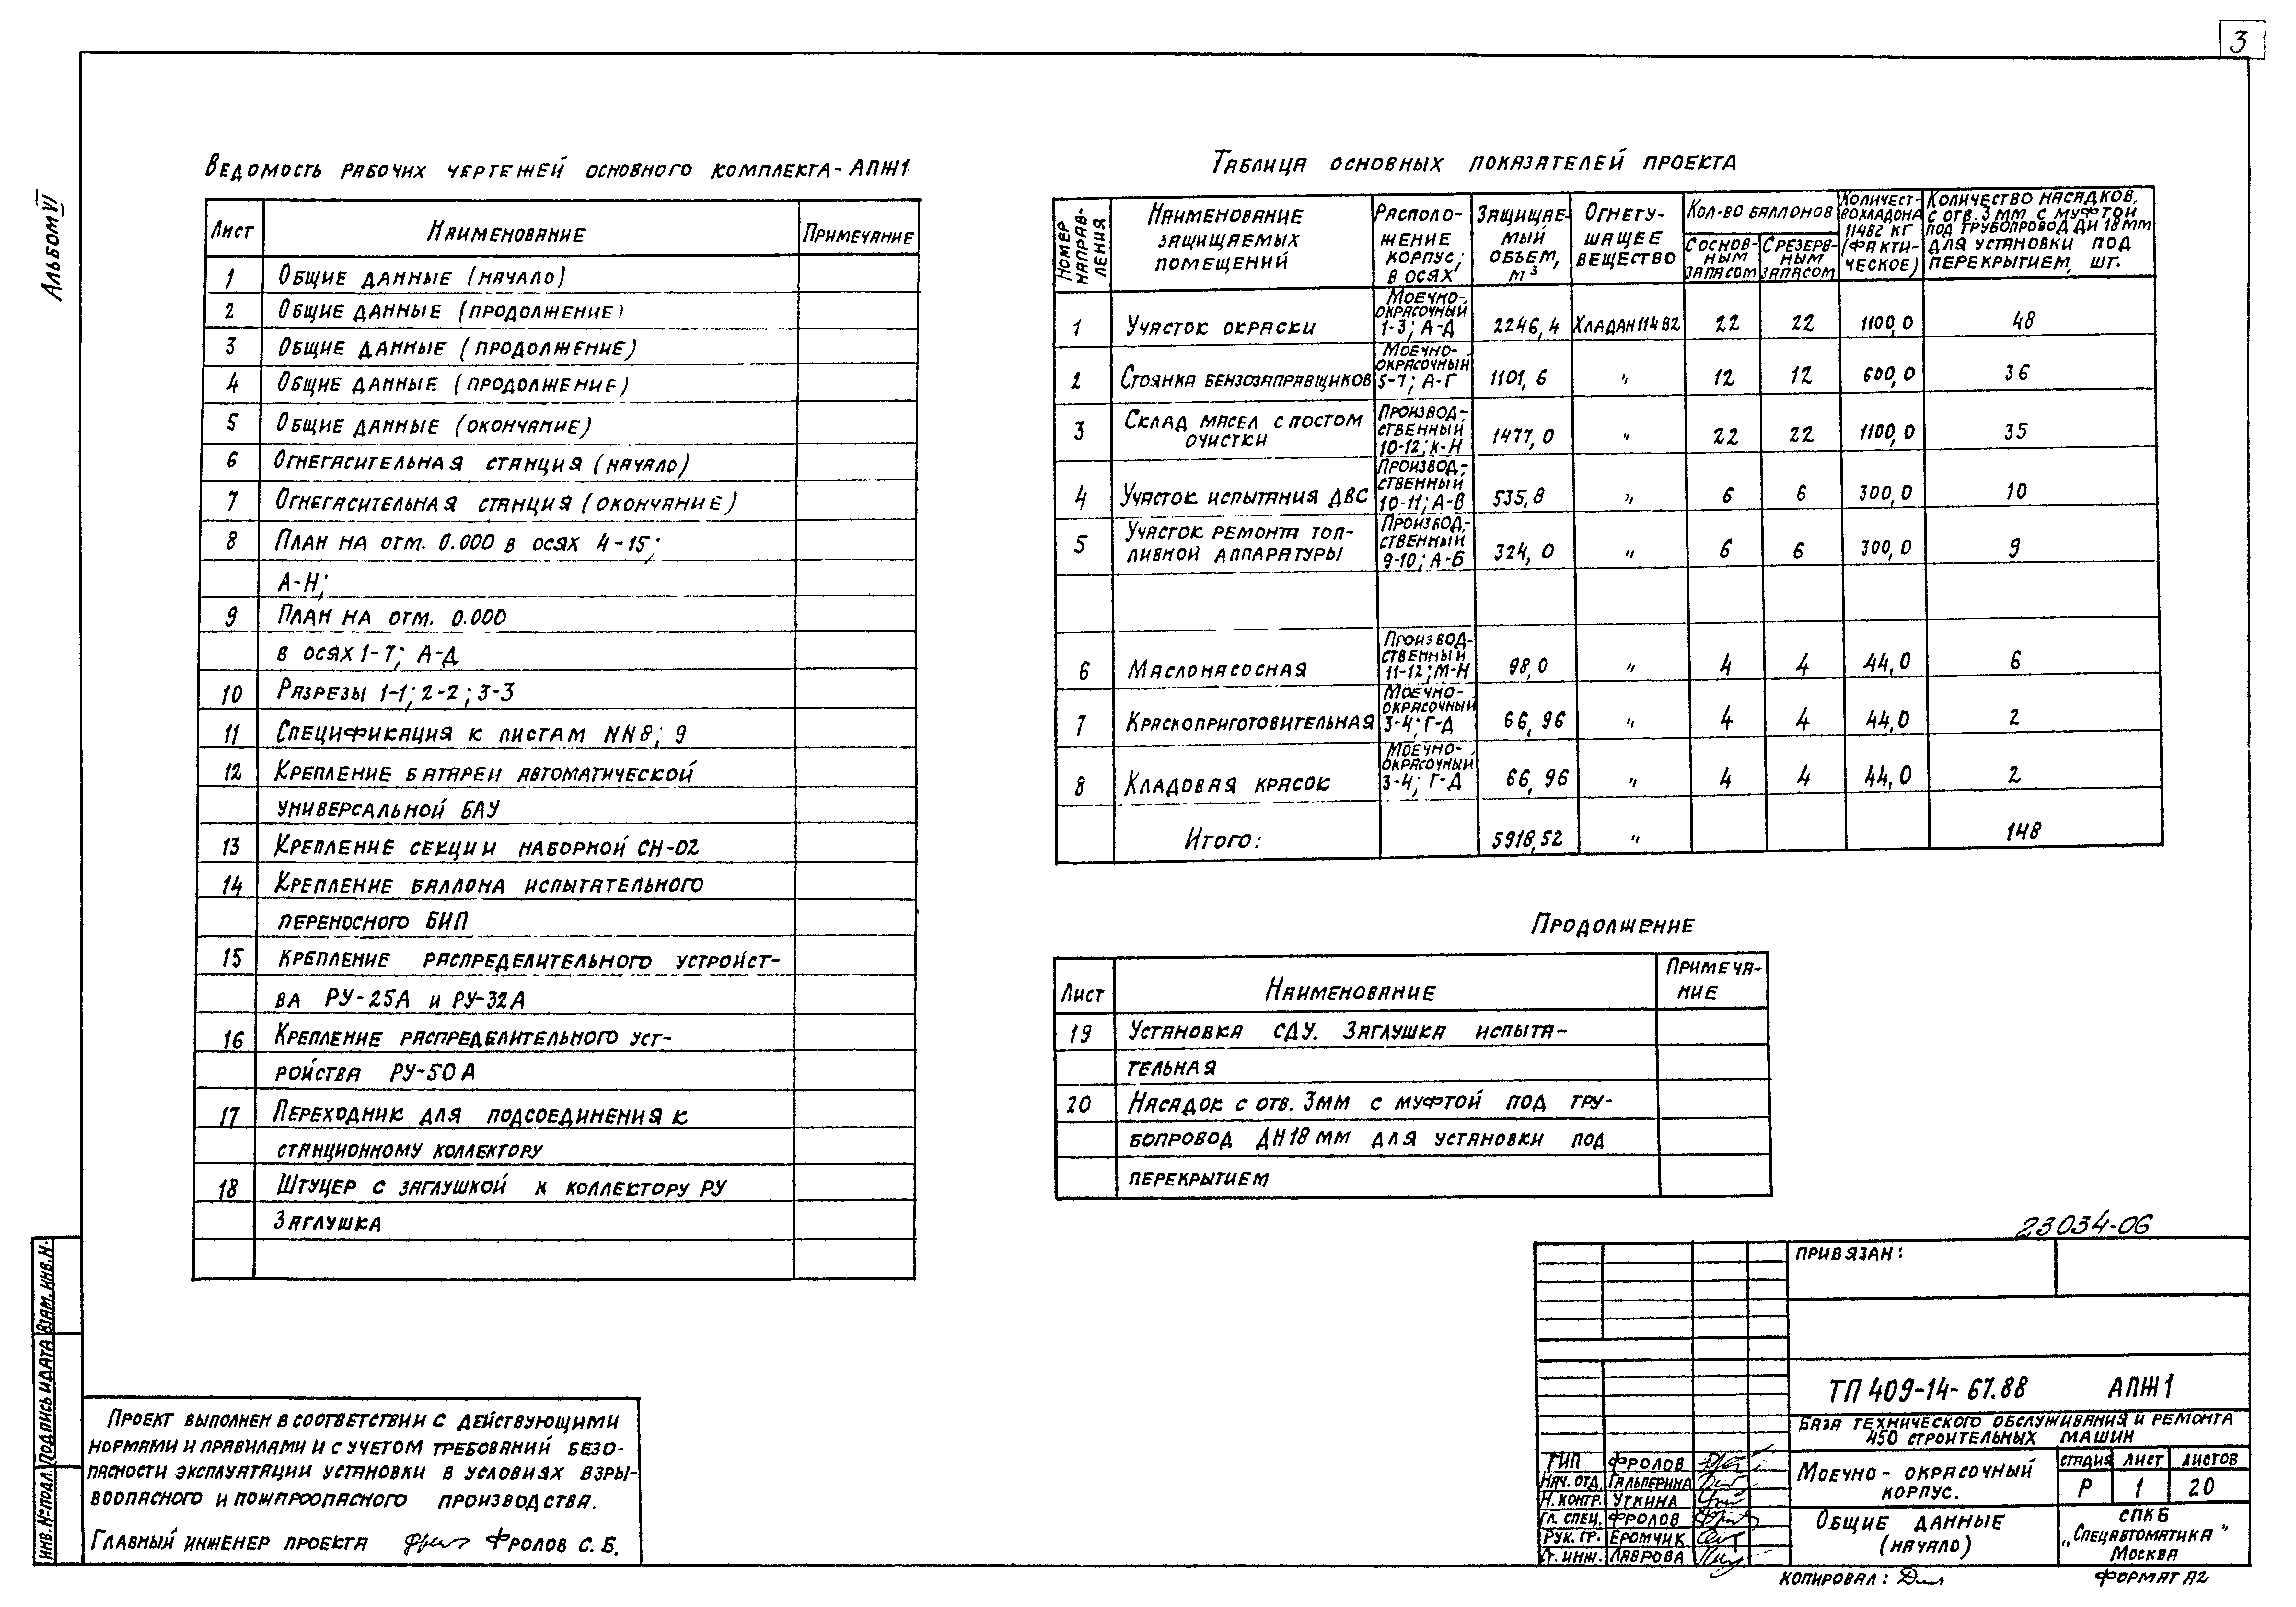 3
Альбом VI
Ведомость рабочих чертежей основного комплекта - АПЖ1
Лист Наименование Примечание
1 Общие данные (начало)
2 Общие данные (продолжение)
3 Общие данные (продолжение)
4 Общие данные (продолжение)
5 Общие данные (окончание)
6 Огнегасительная станция (начало)
7 Огнегасительная станция (окончание)
8 План на отм. 0.000 в осях 4-15;
А-Н;
9 План на отм. 0.000
в осях 1-7; А-Д
10 Разрезы 1-1; 2-2; 3-3
11 Спецификация к листам NN8; 9
12 Крепление батареи автоматической
универсальной БАУ
13 Крепление секции наборной СН-02
14 Крепление баллона испытательного
переносного БИП
15 Крепление распределительного устройст-
ва РУ-25А и РУ-32А
16 Крепление распределительного уст-
ройства РУ-50А
17 Переходник для подсоединения к
станционному коллектору
18 Штуцер с заглушкой к коллектору РУ
Заглушка
Таблица основных показателей проекта
Номер направ-ления
Наименование защищаемых помещений
Располо-жение корпус; в осях
Защищае-мый объем, м³
Огнету-шащее вещество
Кол-во баллонов
С основ-ным запасом
С резерв-ным запасом
Количест-во хладона 114В2 кг (факти-ческое)
Количество насадков, с отв. 3мм с муфтой под трубопровод Дн 18мм для установки под перекрытием, шт.
1 Участок окраски Моечно-окрасочный 1-3; А-Д 2246,4 Хладан 114В2 22 22 1100,0 48
2 Стоянка бензозаправщиков Моечно-окрасочный 5-7; А-Г 1101,6 " 12 12 600,0 36
3 Склад масел с постом очистки Производ-ственный 10-12; К-Н 1477,0 " 22 22 1100,0 35
4 Участок испытания ДВС Производ-ственный 10-11; А-В 535,8 " 6 6 300,0 10
5 Участок ремонта топ-ливной аппаратуры Производ-ственный 9-10; А-Б 324,0 " 6 6 300,0 9
6 Маслонасосная Производ-ственный 11-12; М-Н 98,0 " 4 4 44,0 6
7 Краскоприготовительная Моечно-окрасочный 3-4; Г-Д 66,96 " 4 4 44,0 2
8 Кладовая красок Моечно-окрасочный 3-4; Г-Д 66,96 " 4 4 44,0 2
Итого: 5918,52 " 148
Продолжение
Лист Наименование Примеча-ние
19 Установка СДУ. Заглушка испыта-
тельная
20 Насадок с отв. 3мм с муфтой под тру-
бопровод ДН18 мм для установки под
перекрытием
23034-06
Привязан:
ТП 409-14-67.88 АПЖ1
База технического обслуживания и ремонта
450 строительных машин
ГИП Фролов
Нач. отд. Гальперина
Н. контр. Уткина
Гл. спец. Фролов
Рук. гр. Еромчик
Ст. инж. Лаврова
Моечно-окрасочный
корпус.
стадия лист листов
Р 1 20
Общие данные
(начало)
СПКБ
„Спецавтоматика"
Москва
Копировал:
Формат А2
Проект выполнен в соответствии с действующими
нормами и правилами и с учетом требований безо-
пасности эксплуатации установки в условиях взры-
воопасного и пожароопасного производства.
Главный инженер проекта Фролов С.Б.
Инв. № подл. Подпись и дата Взам. инв. н.